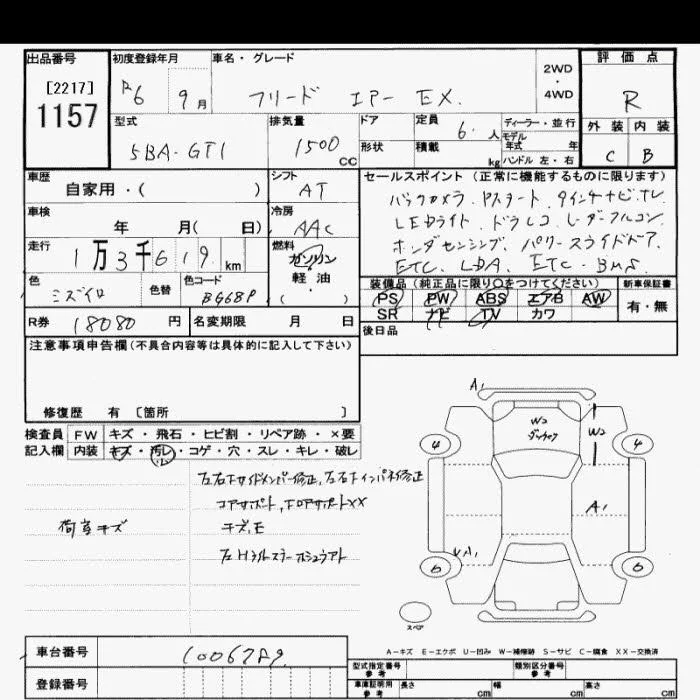 出品番号 初度登録年月 車名・グレード 評価点
[2217] 2WD
1157 R6 9月 フリード エアー EX. ・ 4WD R
型式 排気量 ドア 定員 ディーラー・並行 外装 内装
5BA-GT1 1500 CC 6. 人 モデル年式 年
形状 積載 kg ハンドル 左・右 C B
車歴 シフト セールスポイント (正常に機能するものに限ります)
自家用・( ) AT バックカメラ.
車検 冷房 LEDライト. ドラレコ
年 月( 日) AAC ホンダセンシング. パワースライドドア.
走行 燃料 ETC.
1万3千619 km ガソリン
軽油
・( )
色 色替 色コード 装備品 (純正品に限り○をつけてください) 新車保証書
ミズイロ BG68P PS PW ABS エアB AW 有・無
R券 18080 円 名変期限 月 日 SR ナビ TV カワ
後日品
注意事項申告欄(不具合内容等は具体的に記入して下さい)
修復歴 有 〔箇所 〕
検査員 FW キズ・飛石・ヒビ割・リペア跡・×要
記入欄 内装 キズ・汚レ・コゲ・穴・スレ・キレ・破レ
コアサポート, フロアサポートXX
荷室キズ
A1
W2 W2
4 4
A1
A1
6 6
スペア
A-キズ E-エクボ U-凹み W-補修跡 S-サビ C-腐食 XX-交換済
車台番号
登録番号
型式指定番号 参考 類別区分番号 参考
車庫証明用 参考 長さ cm 幅 cm 高さ cm